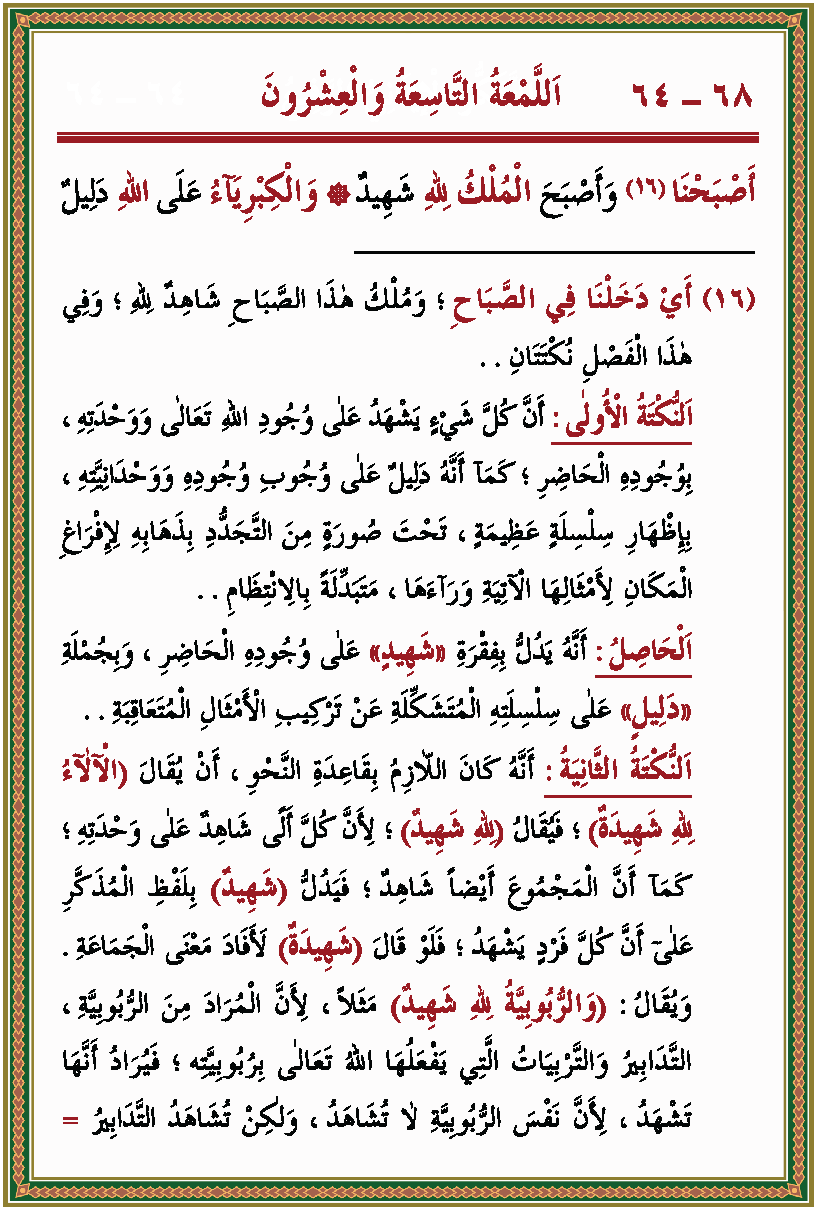 ٦٨ – ٦٤ اَللَّمْعَةُ التَّاسِعَةُ وَالْعِشْرُونَ
أَصْبَحْنَا (١٦) وَأَصْبَحَ الْمُلْكُ لِلّٰهِ شَهِيدٌ ۞ وَالْكِبْرِيَآءُ عَلَى اللّٰهِ دَلِيلٌ
(١٦) أَيْ دَخَلْنَا فِي الصَّبَاحِ ؛ وَمُلْكُ هٰذَا الصَّبَاحِ شَاهِدٌ لِلّٰهِ ؛ وَفِي
هٰذَا الْفَصْلِ نُكْتَتَانِ . .
اَلنُّكْتَةُ الْأُولٰى : أَنَّ كُلَّ شَيْءٍ يَشْهَدُ عَلٰى وُجُودِ اللّٰهِ تَعَالٰى وَوَحْدَتِهِ ،
بِوُجُودِهِ الْحَاضِرِ ؛ كَمَآ أَنَّهُ دَلِيلٌ عَلٰى وُجُوبِ وُجُودِهِ وَوَحْدَانِيَّتِهِ ،
بِإِظْهَارِ سِلْسِلَةٍ عَظِيمَةٍ ، تَحْتَ صُورَةٍ مِنَ التَّجَدُّدِ بِذَهَابِهِ لِإِفْرَاغِ
الْمَكَانِ لِأَمْثَالِهَا الْآتِيَةِ وَرَآءَهَا ، مَتَبَدِّلَةً بِالِانْتِظَامِ . .
اَلْحَاصِلُ : أَنَّهُ يَدُلُّ بِفِقْرَةِ «شَهِيدٍ» عَلٰى وُجُودِهِ الْحَاضِرِ ، وَبِجُمْلَةِ
«دَلِيلٍ» عَلٰى سِلْسِلَتِهِ الْمُتَشَكِّلَةِ عَنْ تَرْكِيبِ الْأَمْثَالِ الْمُتَعَاقِبَةِ . .
اَلنُّكْتَةُ الثَّانِيَةُ : أَنَّهُ كَانَ اللّاَزِمُ بِقَاعِدَةِ النَّحْوِ ، أَنْ يُقَالَ (الْآلَآءُ
لِلّٰهِ شَهِيدَةٌ) ؛ فَيُقَالُ (لِلّٰهِ شَهِيدٌ) ؛ لِأَنَّ كُلَّ أَلًى شَاهِدٌ عَلٰى وَحْدَتِهِ ؛
كَمَآ أَنَّ الْمَجْمُوعَ أَيْضاً شَاهِدٌ ؛ فَيَدُلُّ (شَهِيدٌ) بِلَفْظِ الْمُذَكَّرِ
عَلٰىٓ أَنَّ كُلَّ فَرْدٍ يَشْهَدُ ؛ فَلَوْ قَالَ (شَهِيدَةٌ) لَأَفَادَ مَعْنَى الْجَمَاعَةِ .
وَيُقَالُ : (وَالرُّبُوبِيَّةُ لِلّٰهِ شَهِيدٌ) مَثَلاً ، لِأَنَّ الْمُرَادَ مِنَ الرُّبُوبِيَّةِ ،
التَّدَابِيرُ وَالتَّرْبِيَاتُ الَّتِي يَفْعَلُهَا اللّٰهُ تَعَالٰى بِرُبُوبِيَّتِه ؛ فَيُرَادُ أَنَّهَا
تَشْهَدُ ، لِأَنَّ نَفْسَ الرُّبُوبِيَّةِ لاٰ تُشَاهَدُ ، وَلٰكِنْ تُشَاهَدُ التَّدَابِيرُ =